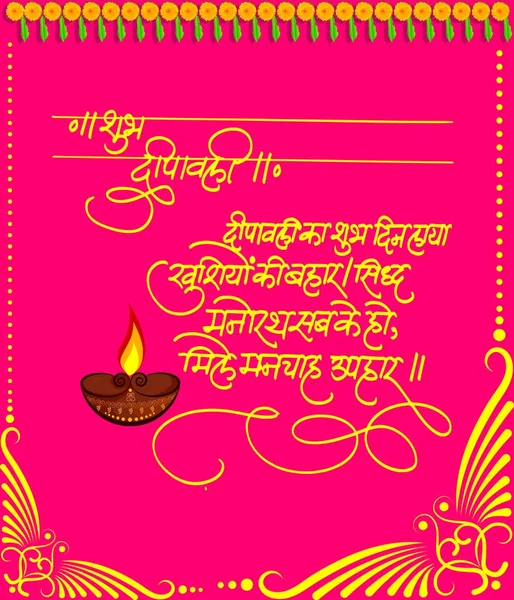 ॥ शुभ
दीपावली ॥
दीपावली का शुभ दिन लाया
खुशियों की बहार। सिध्द
मनोरथ सब के हो,
मिले मनचाह उपहार ॥